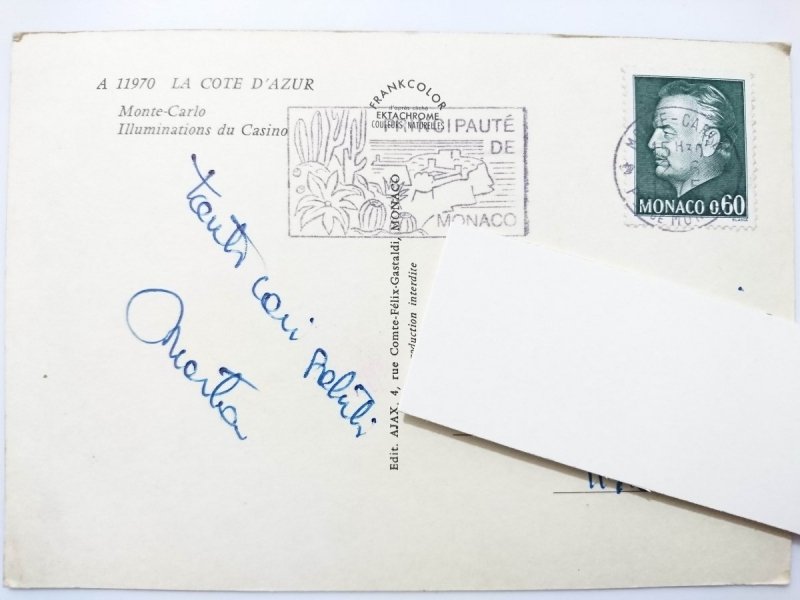 A 11970 LA COTE D'AZUR
Monte-Carlo
Illuminations du Casino
FRANKCOLOR
d'après cliché
EKTACHROME
COULEURS NATURELLES
PRINCIPAUTÉ
DE
MONACO
MONTE-CARLO
MONACO 0.60
Tanti cari saluti
Marta
Edit. AJAX. 4, rue Comte-Félix-Gastaldi, MONACO
interdite